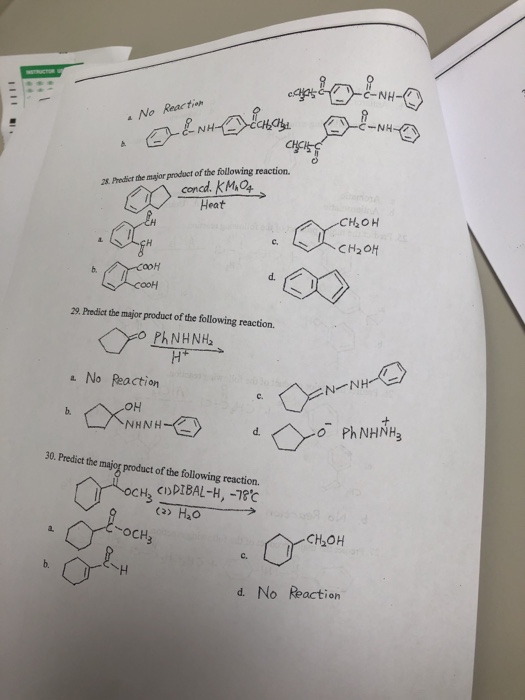 INSTRUCTOR
a. No Reaction
CH₃CH₂C
O
O
C-NH
b.
O
C-NH
O
CCH₂CH₃
O
C-NH
CH₃CH₂C
O
28. Predict the major product of the following reaction.
concd. KMnO₄
Heat
a.
O
CH
CH
O
c.
CH₂OH
CH₂OH
b.
COOH
COOH
d.
29. Predict the major product of the following reaction.
O PhNHNH₂
H⁺
a. No Reaction
c.
N-NH
b.
OH
NHNH
d.
O⁻ PhNHNH₃⁺
30. Predict the major product of the following reaction.
O
OCH₃ (1) DIBAL-H, -78°C
(2) H₂O
a.
O
C-OCH₃
c.
CH₂OH
b.
O
C-H
d. No Reaction